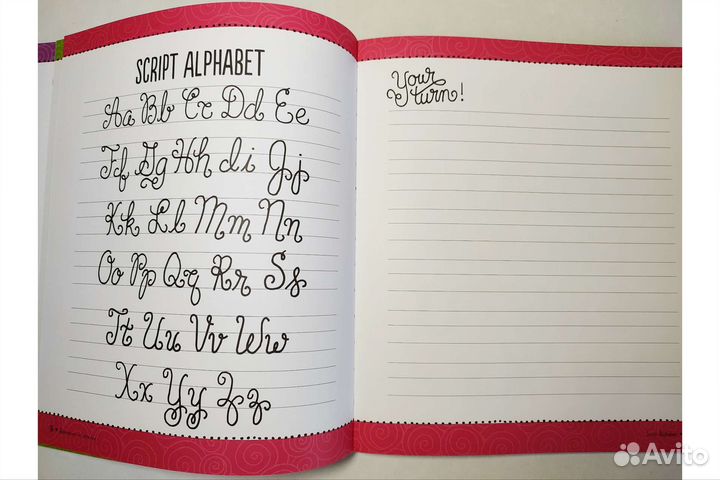 SCRIPT ALPHABET
Aa Bb Cc Dd Ee
Ff Gg Hh Ii Jj
Kk Ll Mm Nn
Oo Pp Qq Rr Ss
Tt Uu Vv Ww
Xx Yy Zz
Your
turn!
Avito